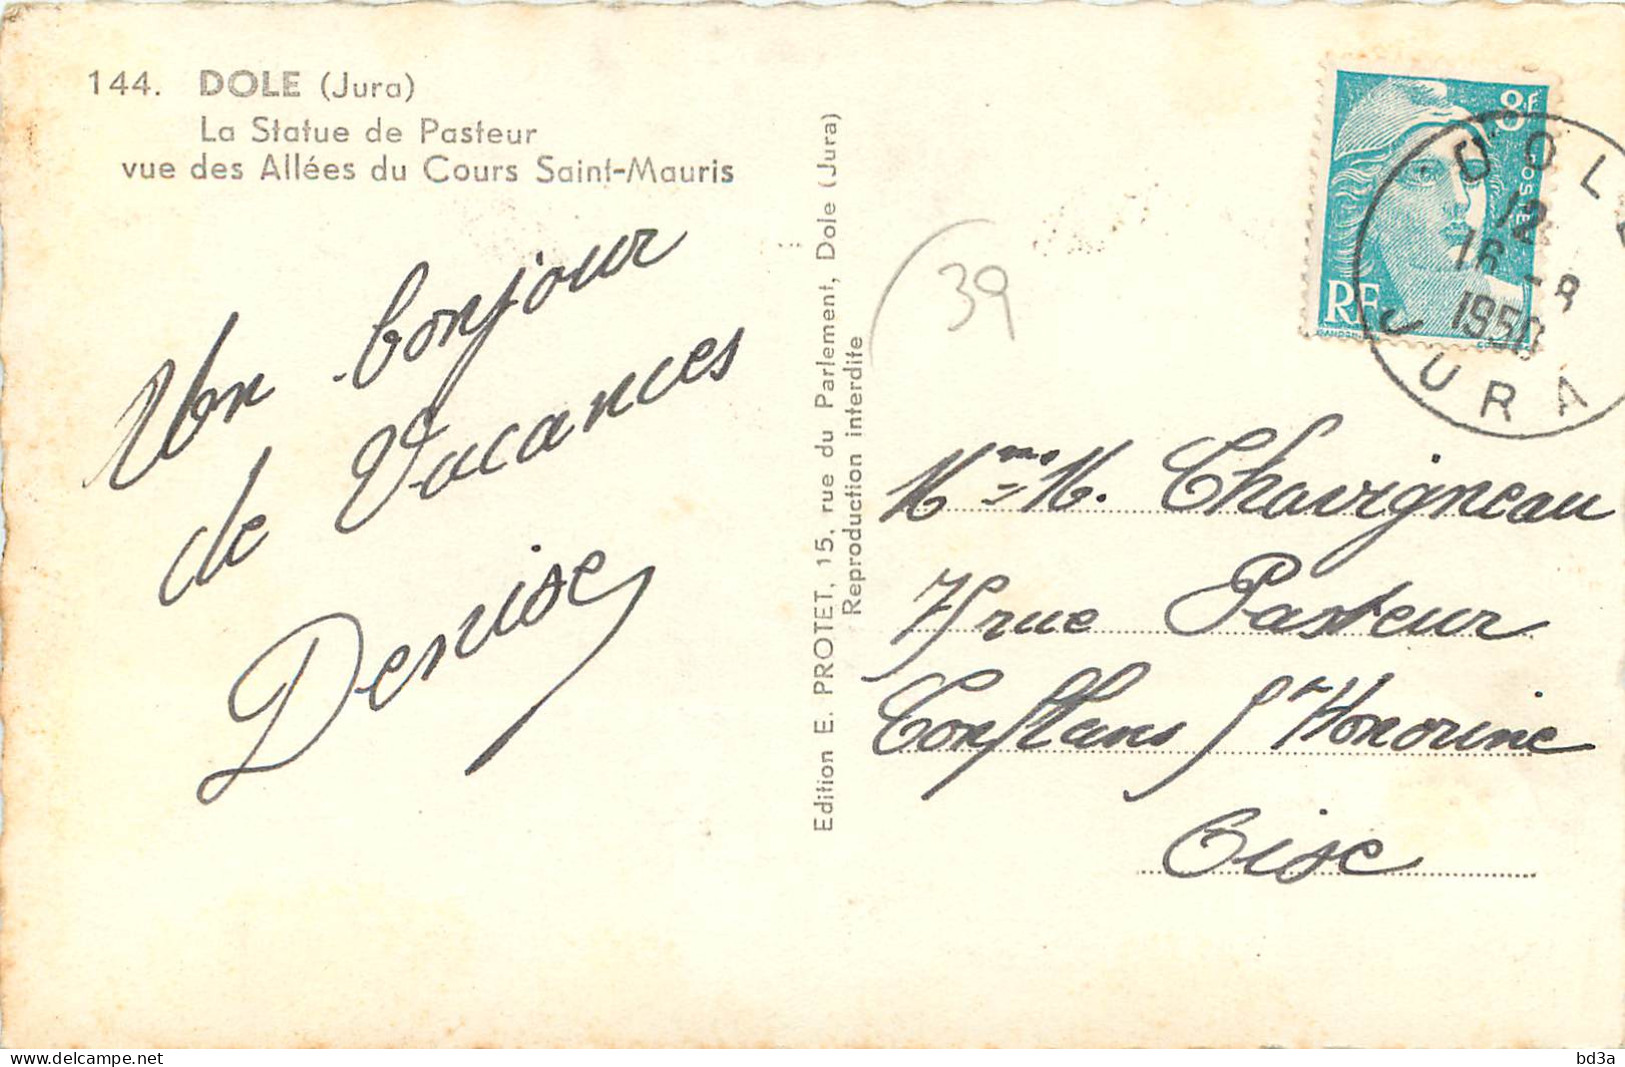 144. DOLE (Jura)
La Statue de Pasteur
vue des Allées du Cours Saint-Mauris
Un bonjour
de Vacances
Denise
Edition E. PROTET, 15, rue du Parlement, Dole (Jura)
Reproduction interdite
39
8F
POSTES
RF
DOLE
12
16 -8
1950
JURA
Mme M. Chavigneau
75 rue Pasteur
Conflans Ste Honorine
Oise
delcampe.net
bd3a